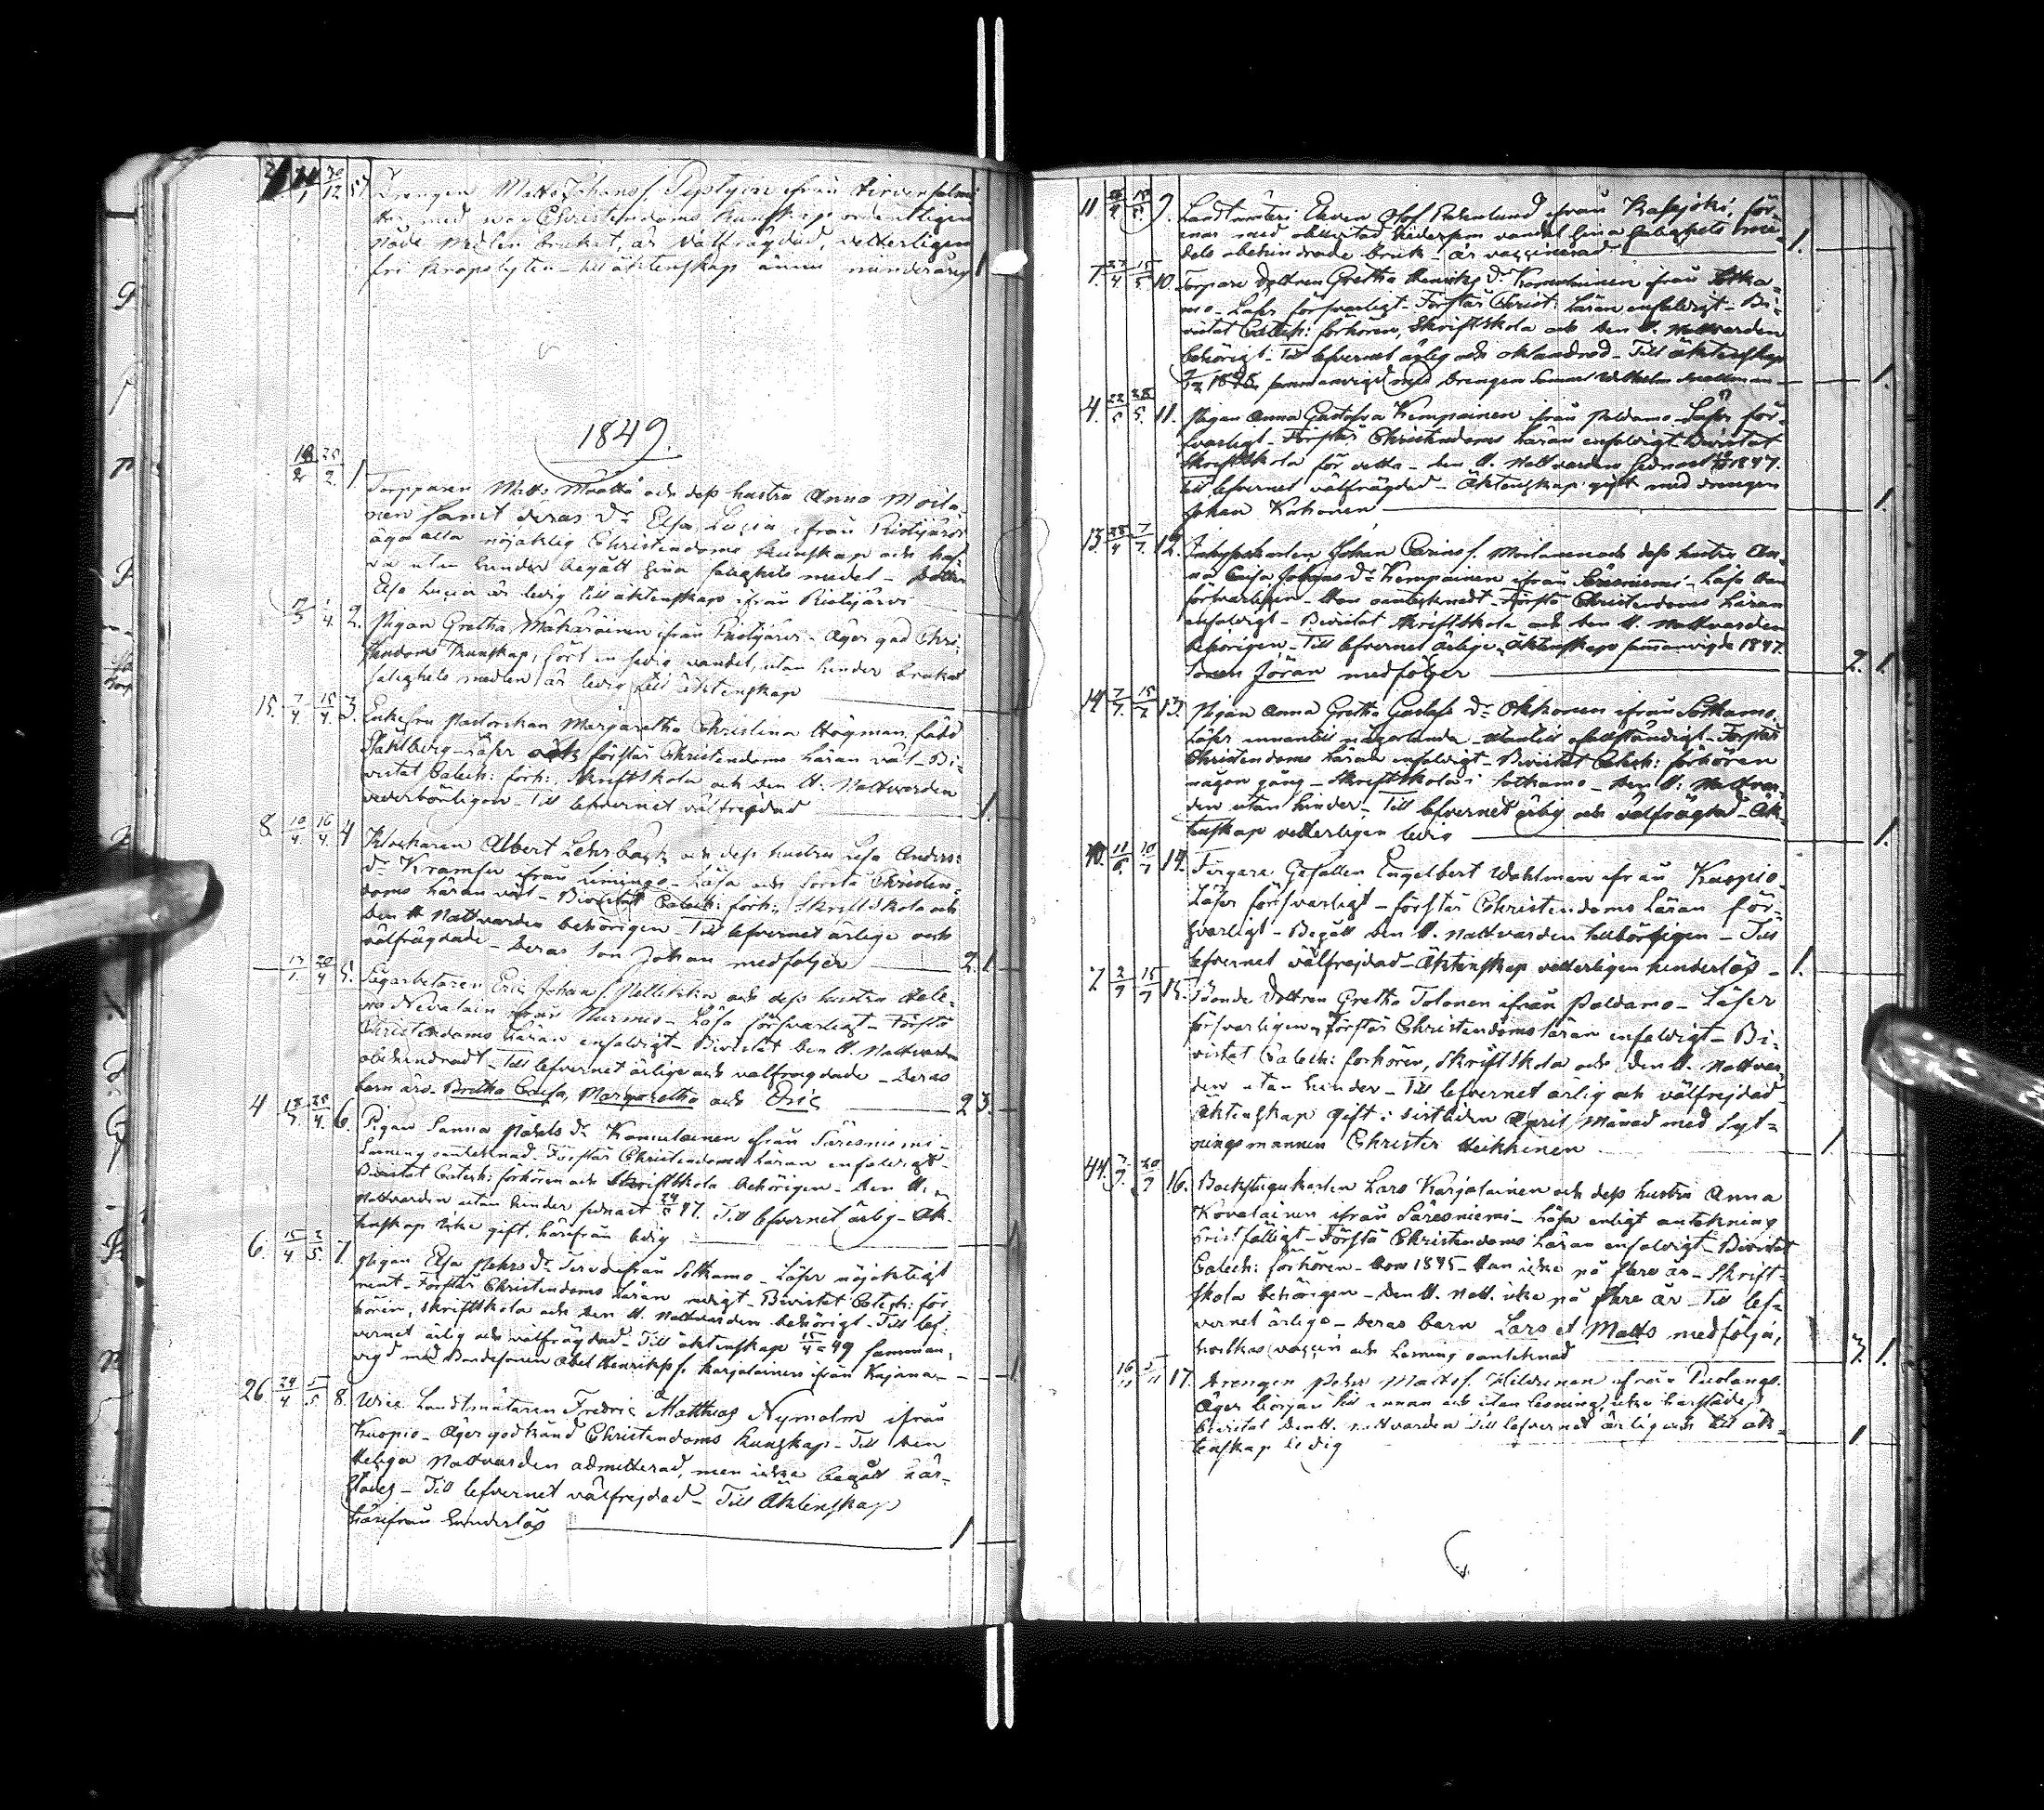 Drengen Matts Johans s. ifrån
med Christendoms kunskap ordentligen
brukat, är välfrägdad, vetterligen
fri till äktenskap ännu minderårig 1
1849.
1. Torpparen Matts Määttä och dess hustru Anna Moila-
nen samt deras Dr Elsa Lucia ifrån Ristijärvi
äga alla nöjaktig Christendoms kunskap och haf-
va utan hinder begått sina salighets medel - Dottren
Elsa Lucia är ledig till äktenskap ifrån Ristijärvi
2. Pigan Gretha Mäkäräinen ifrån Ristijärvi - Äger god Chri-
stendoms kunskap, fört en sedig vandel, utan hinder brukat
salighets medlen, är ledig till äktenskap
15. 7/4 15/4 3. Enkefru Pastorskan Margaretha Christina Högman, född
Stahlberg - Läser och förstår Christendoms läran väl - Bi-
vistat Catech: förh:, Skriftskola och den H. Nattvarden
vederbörligen - Till lefvernet välfrejdad 1.
8. 10/4 16/4 4 Klockaren Albert Lehrbäck och dess hustru Lisa Anders
Dr Kramsu ifrån Limingo - Läsa och förstå Christen-
doms läran väl - Bivistat Catech: förh:, Skriftskola och
den H Nattvarden behörigen - Till lefvernet ärlige och
välfrägdade - Deras Son Johan medföljer 2. 1.
20/4 5. Sågarbetaren Eric Johan s. Pellikkin och dess hustru Hele-
na Nevalain ifrån Nurmis - Läsa försvarligt - Förstå
Christendoms läran enfaldigt - Bivistat den H. Nattvarden
obehindradt - Till lefvernet ärlige och välfrägdade - Deras
barn äro Bretha Caisa, Margaretha och Eric 2 3.
4 25/4 6. Pigan Sanna Påhls Dr Komulainen ifrån Säresniemi -
Läsning oantecknad - Förstår Christendoms läran enfaldigt -
Bivistat Catech: förhören och Skriftskola behörigen - Den H.
Nattvarden utan hinder senast 47. Till lefvernet ärlig - Äk-
tenskap icke gift, härifrån ledig 1
6. 15/4 2/5 7. Pigan Elsa Pehrs Dr Tervo ifrån Sotkamo - Läser nöjaktigt
rent - Förstår Christendoms läran redigt - Bivistat Catech: för-
hören, Skriftskola och den H. Nattvarden behörigt - Till lef-
vernet ärlig och välfrägdad - Till äktenskap 15/4 49 samman-
vigd med Bondesonen Abel Henriks s. Karjalainen ifrån Kajana 1
26 24/4 5/5 8. Vice Landtmätaren Fredric Matthias Nymalm ifrån
Kuopio - Äger godkänd Christendoms kunskap - Till den
Heliga Nattvarden admitterad, men icke begått här-
städes - Till lefvernet välfrejdad - Till Äktenskap
härifrån hinderlös 1
11 9. Landtmäteri Eleven Olof ifrån Kalajoki, för-
enar med sedesam vandel sina salighets me-
dels obehindrade bruk - är vaccinerad 1.
7. 27/4 15/5 10. Torpare dottren Gretha Henriks Dr Komulainen ifrån Sotka-
mo - Läser försvarligt - Förstår Christ: läran enfaldigt - Bi-
vistat Catech: förhören, Skriftskola och den H. Nattvarden
behörigt - Till lefvernet ärlig och oklandrad - Till äktenskap
sammanvigd med Drengen Samuel Wilhelm 1.
4. 22/5 28/5 11. Pigan Anna Gustafva Kemppainen ifrån Paldamo - Läser för-
svarligt - Förstår Christendoms läran enfaldigt - Bivistat
Skriftskola för detta - Den H. Nattvarden senast 1847.
till lefvernet välfrägdad - Äktenskap gift med drengen
Johan Kähönen 1
13. 28/4 7/7 12. Inhyseskarlen Johan Carins s. Moilanen och dess hustru An-
na Caisa Johans Dr Kemppainen ifrån Säresniemi - Läsa Han
försvarligen - Hon oantecknadt - Förstå Christendoms läran
enfaldigt - Bivistat Skriftskola och den H. Nattvarden
behörigen - Till lefvernet ärlige - Äktenskaps sammanvigde 1847.
Sonen Jöran medföljer 2. 1.
14 7/7 15/7 13. Pigan Anna Gretha Gustafs Dr Okkonen ifrån Sotkamo,
Läser innantill någorlunda - utantill ofullständigt - Förstår
Christendoms läran enfaldigt - Bivistat Catech: förhören
någon gång - Skriftskola i Sotkamo - Den H. Nattvar-
den utan hinder - Till lefvernet ärlig och välfrägdad - Äk-
tenskap vetterligen ledig 1.
10. 11/6 10/7 14. Färgare Gesällen Engelbert Wahlman ifrån Kuopio -
Läser försvarligt - förstår Christendoms läran för-
svarligt - Begått den H. Nattvarden tillbörligen - Till
lefvernet välfrejdad - Äktenskap vetterligen hinderlös - 1.
7 2/7 15/7 15. Bonde dottren Gretha Tolonen ifrån Paldamo - Läser
försvarligen, Förstår Christendoms läran enfaldigt - Bi-
vistat Catech: förhören, Skriftskola och den H. Nattvar-
den utan hinder - Till lefvernet ärlig och välfrejdad -
Äktenskap gift i sistliden April Månad med Lyt-
ningsmannen Christer Heikkinen 1
44. 20/7 16. Backstugukarlen Lars Karjalainen och dess hustru Anna
Kovalainen ifrån Säresniemi - Läsa enligt antekning
bristfälligt - Förstå Christendoms läran enfaldigt - Bivistat
Catech: förhören - Hon 1845 - Han icke på flere år - Skrift-
skola behörigen - Den H. Natt. icke på flere år - Till lef-
vernet ärlige - Deras barn Lars et Matts medfölja,
hvilkas vaccin och Läsning oantecknad 3. 1.
17. Drengen Pehr Matts s. Kilderinen ifrån Puolango.
Äger början till innan och utan läsning, icke härstädes
bivistat den H. nattvarden Till lefvernet ärlig och till äk-
tenskap ledig 1